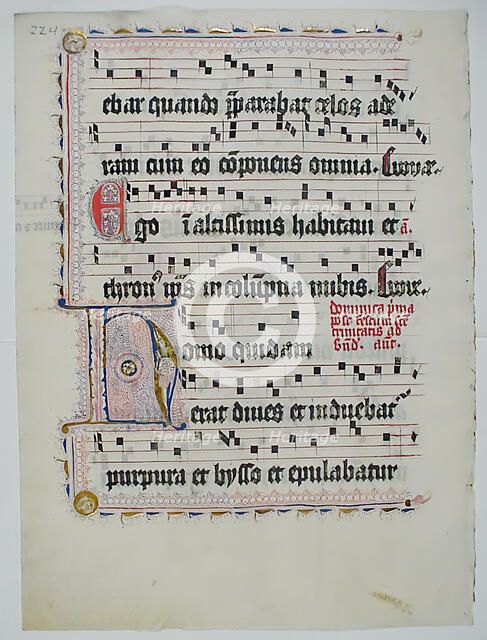 224
ebar quando p̄parabat celos ade
ram cum eo cōponens omnia.
Ego ī altissimis habitaui et a.
thron⁹ in colūpna nubis.
dominica p̄ma
trinitatis ad
Homo quidam
erat diues et induebat'
purpura et bysso et epulabatur
Heritage
Heritage
Heritage
Heritage